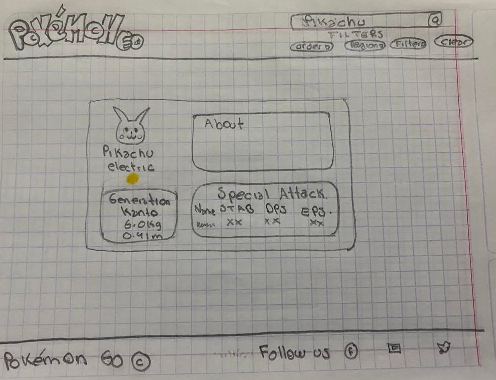 Pokémon GO
Pikachu
FILTERS
order
Regions
Filters
Clear
Pikachu
electric
About
Generation
Kanto
6.0Kg
0.41m
Special Attack
Name STAB DPS EPS.
xx xx xx
Pokémon GO ©
Follow us